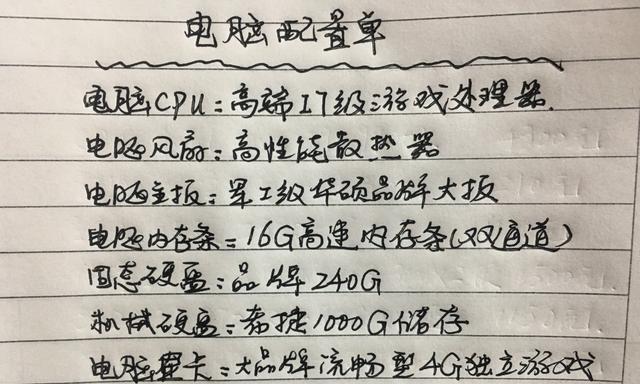 电脑配置单
电脑CPU:高端I7级游戏处理器.
电脑风扇:高性能散热器
电脑主板:军工级华硕品牌大板
电脑内存条:16G高速内存条(双通道)
固态硬盘:品牌240G
机械硬盘:希捷1000G储存
电脑显卡:大品牌流畅型4G独立游戏